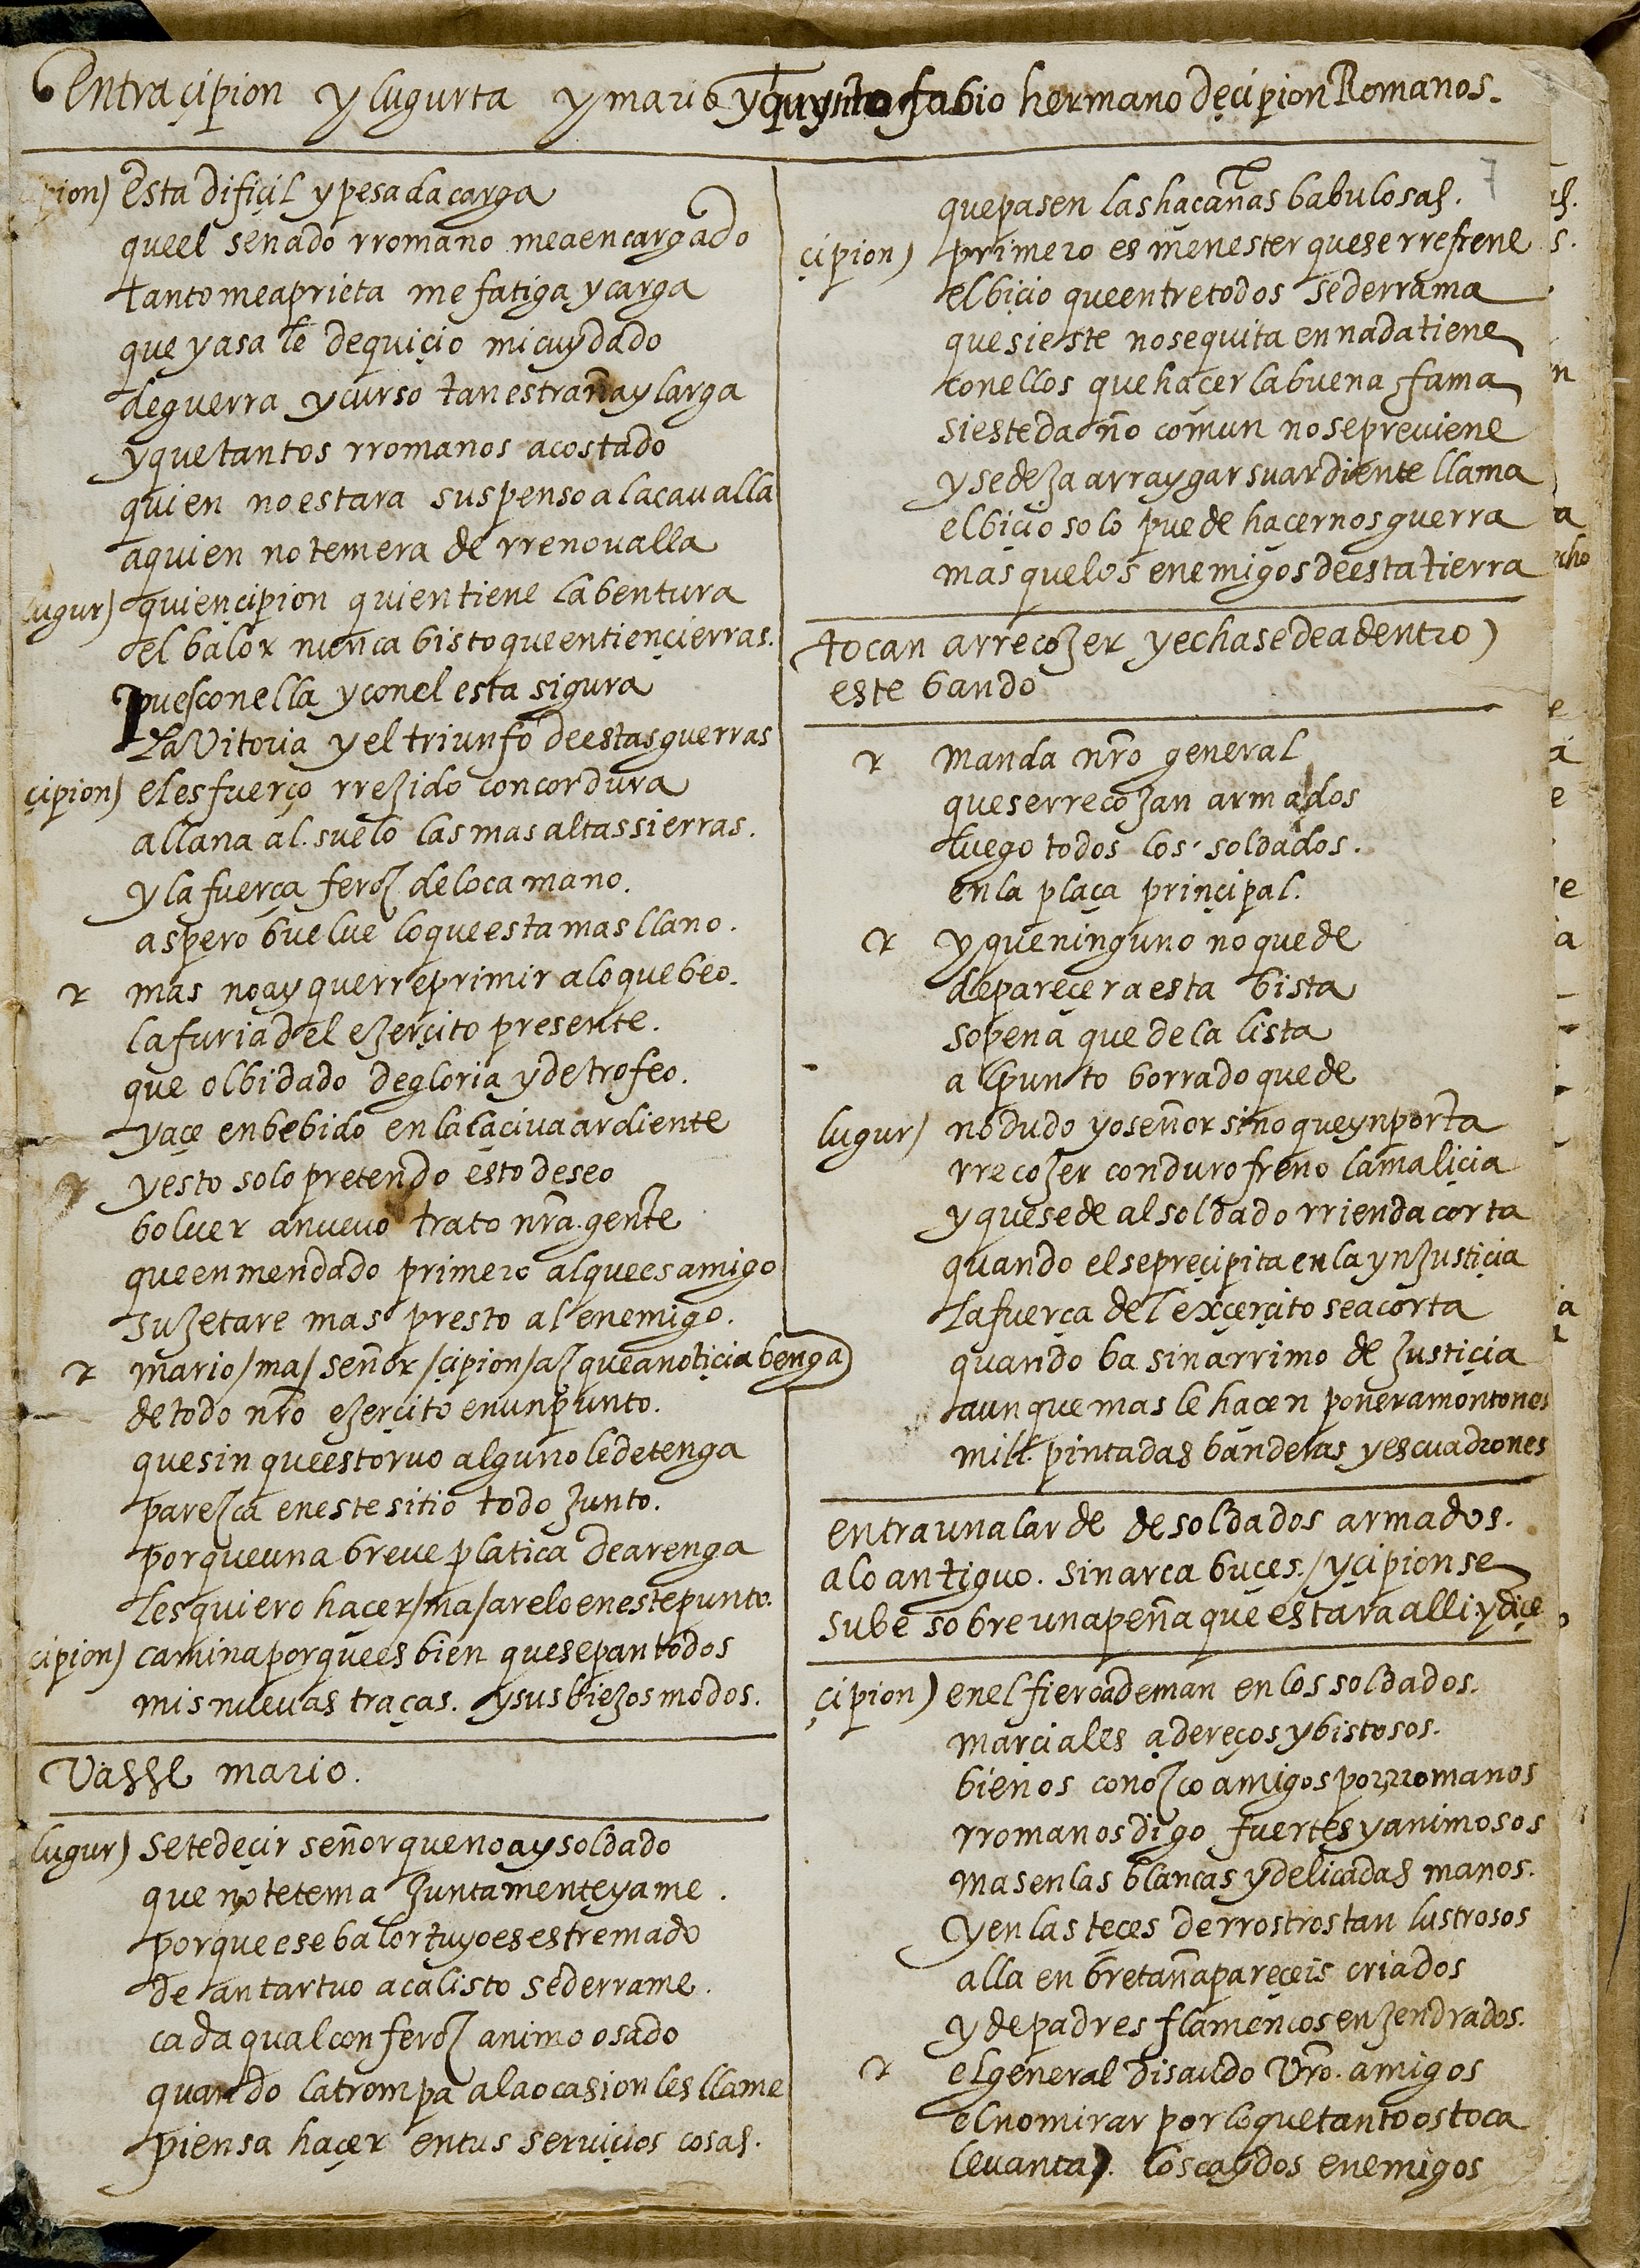 Entra çipion y Lugurta y mario y quynto fabio hermano deçipion Romanos.
çipion) Esta difiçil y pesada carga
que el senado rromano mea encargado
tanto me aprieta me fatiga y carga
que ya sale de quiçio mi cuydado
de guerra y curso tan estraña y larga
y que tantos rromanos a costado
quien no estara suspenso al acavalla
a quien no temera de rrenovalla
lugur) quien çipion quien tiene la bentura
el balor nunca bisto que en ti ençierras.
pues con ella y con el esta sigura
La Vitoria y el triunfo de estas guerras
çipion) el esfuerço rrejido con cordura
allana al suelo las mas altas sierras.
y la fuerça feroz de loca mano.
aspero buelue lo que esta mas llano.
r mas no ay que rreprimir a lo que beo.
la furia del ejerçito presente.
que olbidado de gloria y de trofeo.
yaçe enbebido en la laçiva ardiente
r y esto solo pretendo esto deseo
boluer a nuevo trato nra. gente
que enmendado primero al que es amigo
sujetare mas presto al enemigo.
r mario / ma / señor / çipion / az que a notiçia benga
de todo nro ejerçito en un punto.
que sin que estorvo alguno le detenga
parezca en este sitio todo junto.
porque una breue platica de arenga
les quiero haçer / ma / arelo en este punto.
çipion) camina porque es bien que sepan todos
mis nueuas traças. y sus biejos modos.
Vasse mario.
lugur) sete deçir señor que no ay soldado
que no te tema juntamente y ame.
porque ese balor tuyo es estremado
de antartuo a calisto se derrame.
cada qual con feroz animo osado
quando la trompa a la ocasion les llame
piensa haçer en tus serviçios cosas.
7
que pasen las haçañas babulosas.
çipion) primero es menester que se rrefrene
el biçio que entre todos se derrama
que si este no se quita en nada tiene
con ellos que haçer la buena fama
si este daño comun no se previene
y se deja arraygar su ardiente llama
el biçio solo puede haçernos guerra
mas que los enemigos de esta tierra
tocan arrecojer y echase de adentro)
este bando
r manda nro general
que se rrecojan armados
luego todos los soldados.
en la plaça prinçipal.
r y que ninguno no quede
de pareçer a esta bista
so pena que de la lista
al punto borrado quede
lugur) no dudo yo señor sino que ynporta
rrecojer con duro freno la maliçia
y que se de al soldado rrienda corta
quando el se preçipita en la ynjustiçia
la fuerça del exçerçito se acorta
quando ba sin arrimo de justiçia
aunque mas le haçen poner a montones
mill pintadas banderas y escuadrones
entra un alarde de soldados armados.
a lo antiguo. sin arcabuçes. / y çipion se
sube sobre una peña que estara alli. y diçe
çipion) en el fiero ademan en los soldados.
marciales adereços y bistosos.
bien os conozco amigos por rromanos
rromanos digo fuertes y animosos
mas en las blancas y delicadas manos.
y en las teçes de rrostros tan lustrosos
alla en bretaña pareçeis criados
y de padres flamencos enjendrados.
r el general disauido Vro. amigos
el no mirar por lo que tanto os toca
levanta. los caydos enemigos